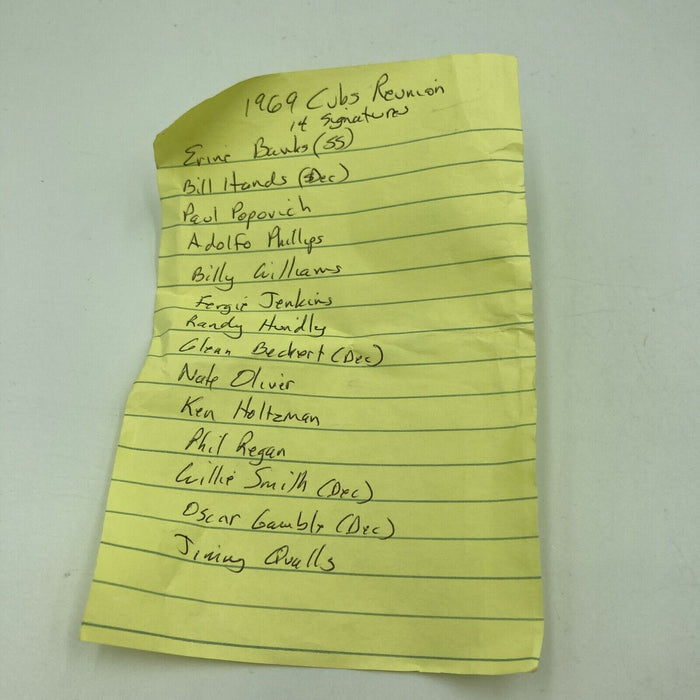 1969 Cubs Reunion
14 Signatures
Ernie Banks (SS)
Bill Hands (Dec)
Paul Popovich
Adolfo Phillips
Billy Williams
Fergie Jenkins
Randy Hundly
Glenn Beckert (Dec)
Nate Oliver
Ken Holtzman
Phil Regan
Willie Smith (Dec)
Oscar Gamble (Dec)
Jimmy Qualls